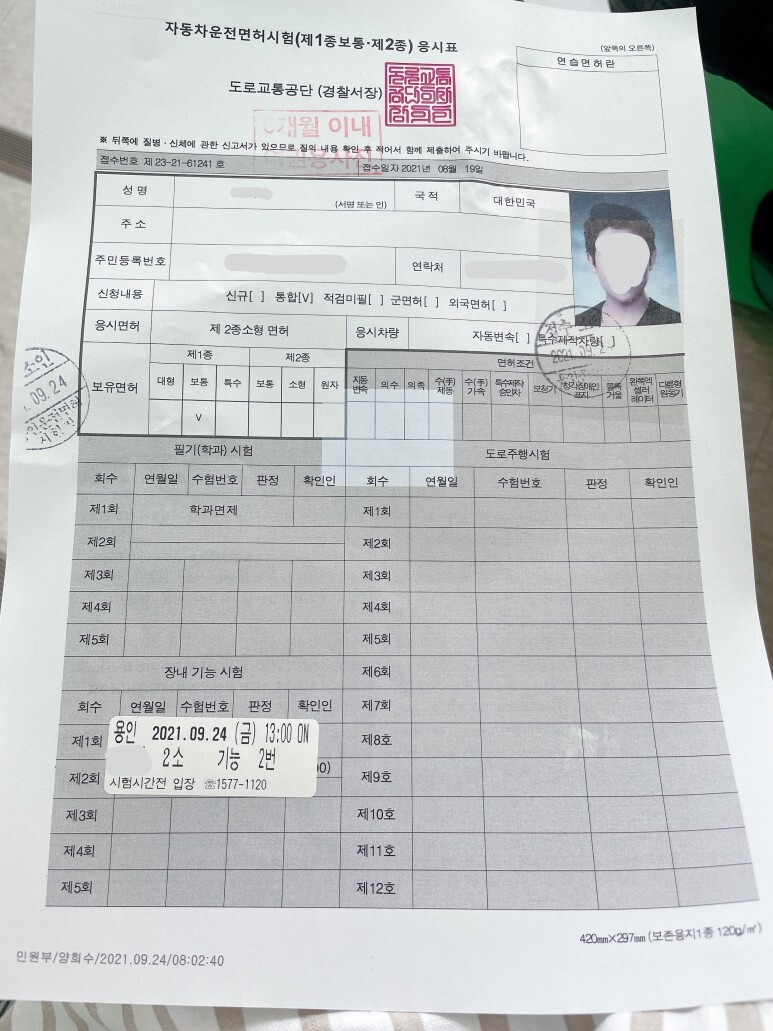 자동차운전면허시험(제1종보통·제2종) 응시표
(앞쪽의 오른쪽)
연습면허란
도로교통공단 (경찰서장)
개월 이내
※ 뒤쪽에 질병·신체에 관한 신고서가 있으므로 질의 내용 확인 후 적어서 함께 제출하여 주시기 바랍니다.
접수번호 제 23-21-61241 호 접수일자 2021년 08월 19일
성 명 (서명 또는 인) 국 적 대한민국
주 소
주민등록번호 연락처
신청내용 신규[ ] 통합[V] 적검미필[ ] 군면허[ ] 외국면허[ ]
응시면허 제 2종소형 면허 응시차량 자동변속[ ] 특수제작차량[ ]
접수
2021. 09. 2
09. 24
운전면허
시험
보유면허 제1종 제2종 면허조건
대형 보통 특수 보통 소형 원자 자동변속 의수 의족 수(手)제동 수(手)가속 특수제작승인차 보청기 청각장애인표지 볼록거울 왼쪽엑셀러레이터 다륜형원동기
V
필기(학과) 시험 도로주행시험
회수 연월일 수험번호 판정 확인인 회수 연월일 수험번호 판정 확인인
제1회 학과면제 제1회
제2회 제2회
제3회 제3회
제4회 제4회
제5회 제5회
장내 기능 시험 제6회
회수 연월일 수험번호 판정 확인인 제7회
제1회 용인 2021.09.24 (금) 13:00 ON 제8호
2소 기능 2번
제2회 00) 제9호
시험시간전 입장 ☏1577-1120
제3회 제10호
제4회 제11호
제5회 제12호
420㎜×297㎜ (보존용지1종 120g/㎡)
민원부/양희수/2021.09.24/08:02:40